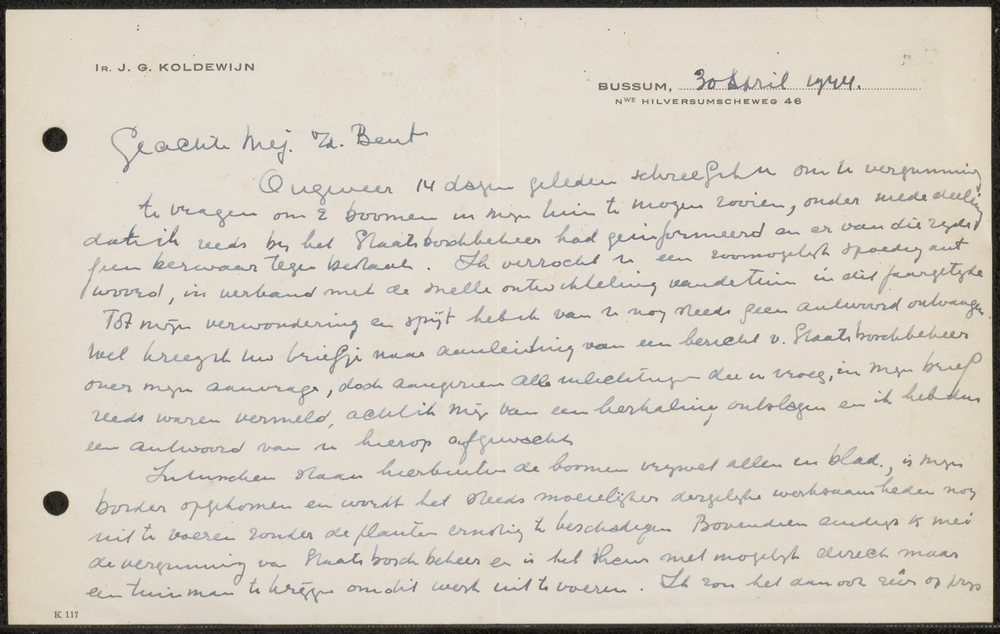 Ir. J. G. KOLDEWIJN
BUSSUM, 30 April 1944.
NWE HILVERSUMSCHEWEG 46
Geachte Mej. v. d. Bent
Ongeveer 14 dagen geleden schreef ik u om u vergunning
te vragen om 2 boomen in mijn tuin te mogen rooien, onder mededeeling
dat ik reeds bij het Staatsboschbeheer had geinformeerd en er van die zijde
geen bezwaar tegen bestaat. Ik verzocht u een zoo mogelijk spoedig ant
woord, in verband met de snelle ontwikkeling van de tuin in dit jaargetijde
Tot mijn verwondering en spijt heb ik van u nog steeds geen antwoord ontvangen.
Wel kreeg ik uw briefje naar aanleiding van een bericht v. Staatsboschbeheer
over mijn aanvrage, doch aangezien alle inlichtingen die u vroeg, in mijn brief
reeds waren vermeld, acht ik mij van een herhaling ontslagen en ik heb dus
een antwoord van u hierop afgewacht
Intusschen staan hierbuiten de boomen vrijwel allen in blad, is mijn
border opgekomen en wordt het steeds moeielijker dergelijke werkzaamheden nog
uit te voeren zonder de planten ernstig te beschadigen Bovendien eindigt 15 mei
de vergunning van Staatsboschbeheer en is het thans niet mogelijk direct maar
een tuinman te krijgen om dit werk uit te voeren. Ik zou het dan ook zéér op prijs
K 117